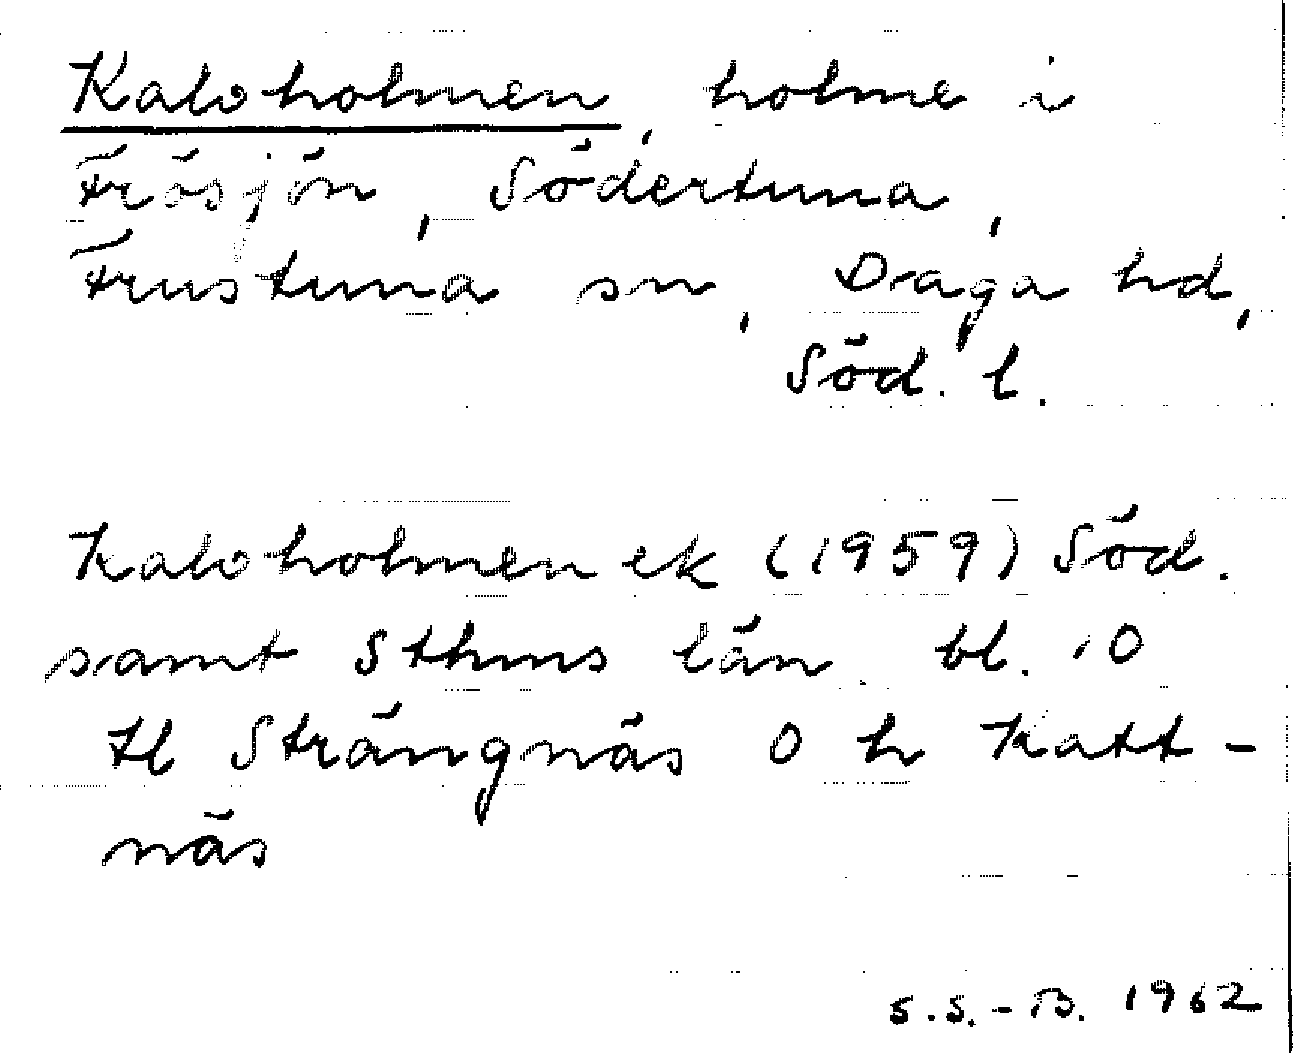 Kalvholmen, holme i
Frösjön, Södertuna,
Frustuna sn, Daga hd,
Söd. l.
Kalvholmen ek (1959) Söd.
samt Sthms län bl. 10
tl Strängnäs O h Katt-
näs
S.S.-B. 1962